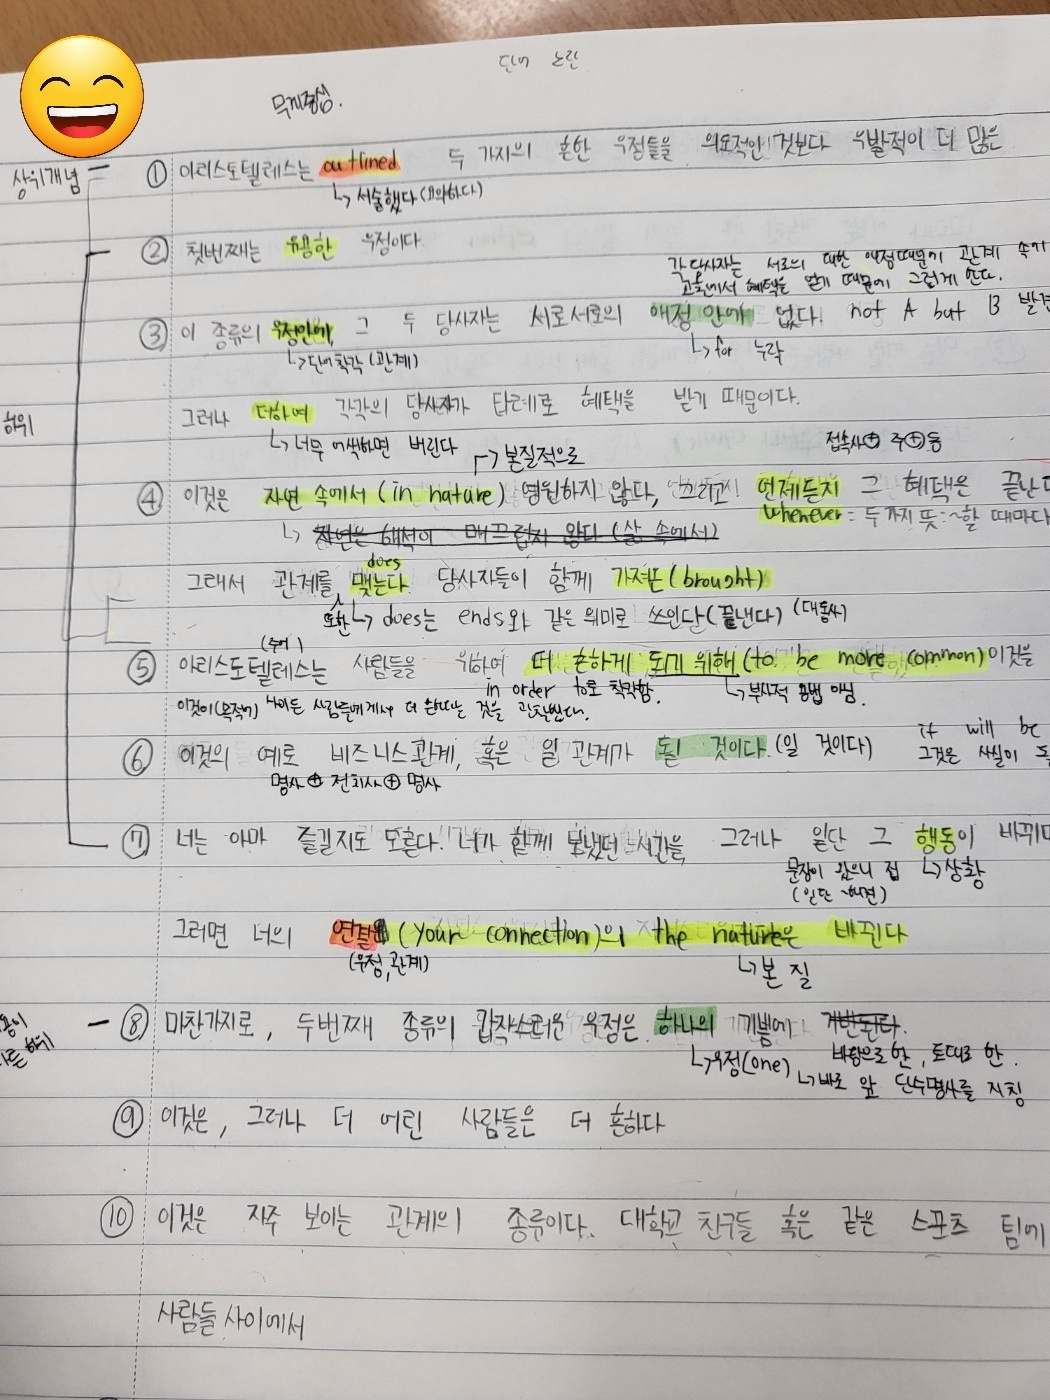 단어 논란
무게중심.
상위개념 ① 아리스토텔레스는 outlined 두 가지의 흔한 우정들을 의도적인 것보다 우발적이 더 많은
↳ 서술했다 (요약하다)
② 첫번째는 유용한 우정이다.
각 당사자는 서로의 대한 애정때문에 관계 속
교훈에서 혜택을 얻기 때문에 그렇게 한다.
③ 이 종류의 우정안에, 그 두 당사자는 서로서로의 애정 안에 없다. not A but B 발견
↳ 단어착각 (관계) ↳ for 누락
하위 그러나 더하여 각각의 당사자가 타례로 혜택을 받기 때문이다.
↳ 너무 어색하면 버린다 ↱ 본질적으로 접속사⊕ 주⊕동
④ 이것은 자연 속에서 (in nature) 영원하지 않다, 그리고 언제든지 그 혜택은 끝난다
whenever = 두가지 뜻:~할 때마다
↳ 자연은 해석이 매끄럽지 않다 (삶 속에서)
does
그래서 관계를 맺는다 당사자들이 함께 가져온 (brought)
또한 ↳ does는 ends와 같은 의미로 쓰인단 (끝낸다) (대동사)
(주어)
⑤ 아리스토텔레스는 사람들을 위하여 더 흔하게 되기 위해 (to be more common) 이것을
in order to로 착각함. ↳ 부사적 용법 아님.
이것이 (목적어) 나이든 사람들에게서 더 흔하다는 것을 관찰했다.
⑥ 이것의 예로 비즈니스관계, 혹은 일 관계가 될 것이다. (일 것이다) it will be
명사 ⊕ 전치사 ⊕ 명사 그것은 사실이
⑦ 너는 아마 즐길지도 모른다. 너가 함께 보냈던 시간을, 그러나 일단 그 행동이 바뀌면
문장이 왔으니 접 ↳ 상황
(일단 ~하면)
그러면 너의 연결 (your connection)의 the nature은 바뀐다
(우정, 관계) ↳ 본 질
⑧ 마찬가지로, 두번째 종류의 갑작스러운 우정은 하나의 기쁨에 기반된다.
↳ 우정(one) 바탕으로 한, 토대로 한.
↳ 바로 앞 단수명사를 지칭
⑨ 이것은, 그러나 더 어린 사람들은 더 흔하다
⑩ 이것은 자주 보이는 관계의 종류이다. 대학교 친구들 혹은 같은 스포츠 팀에
사람들 사이에서